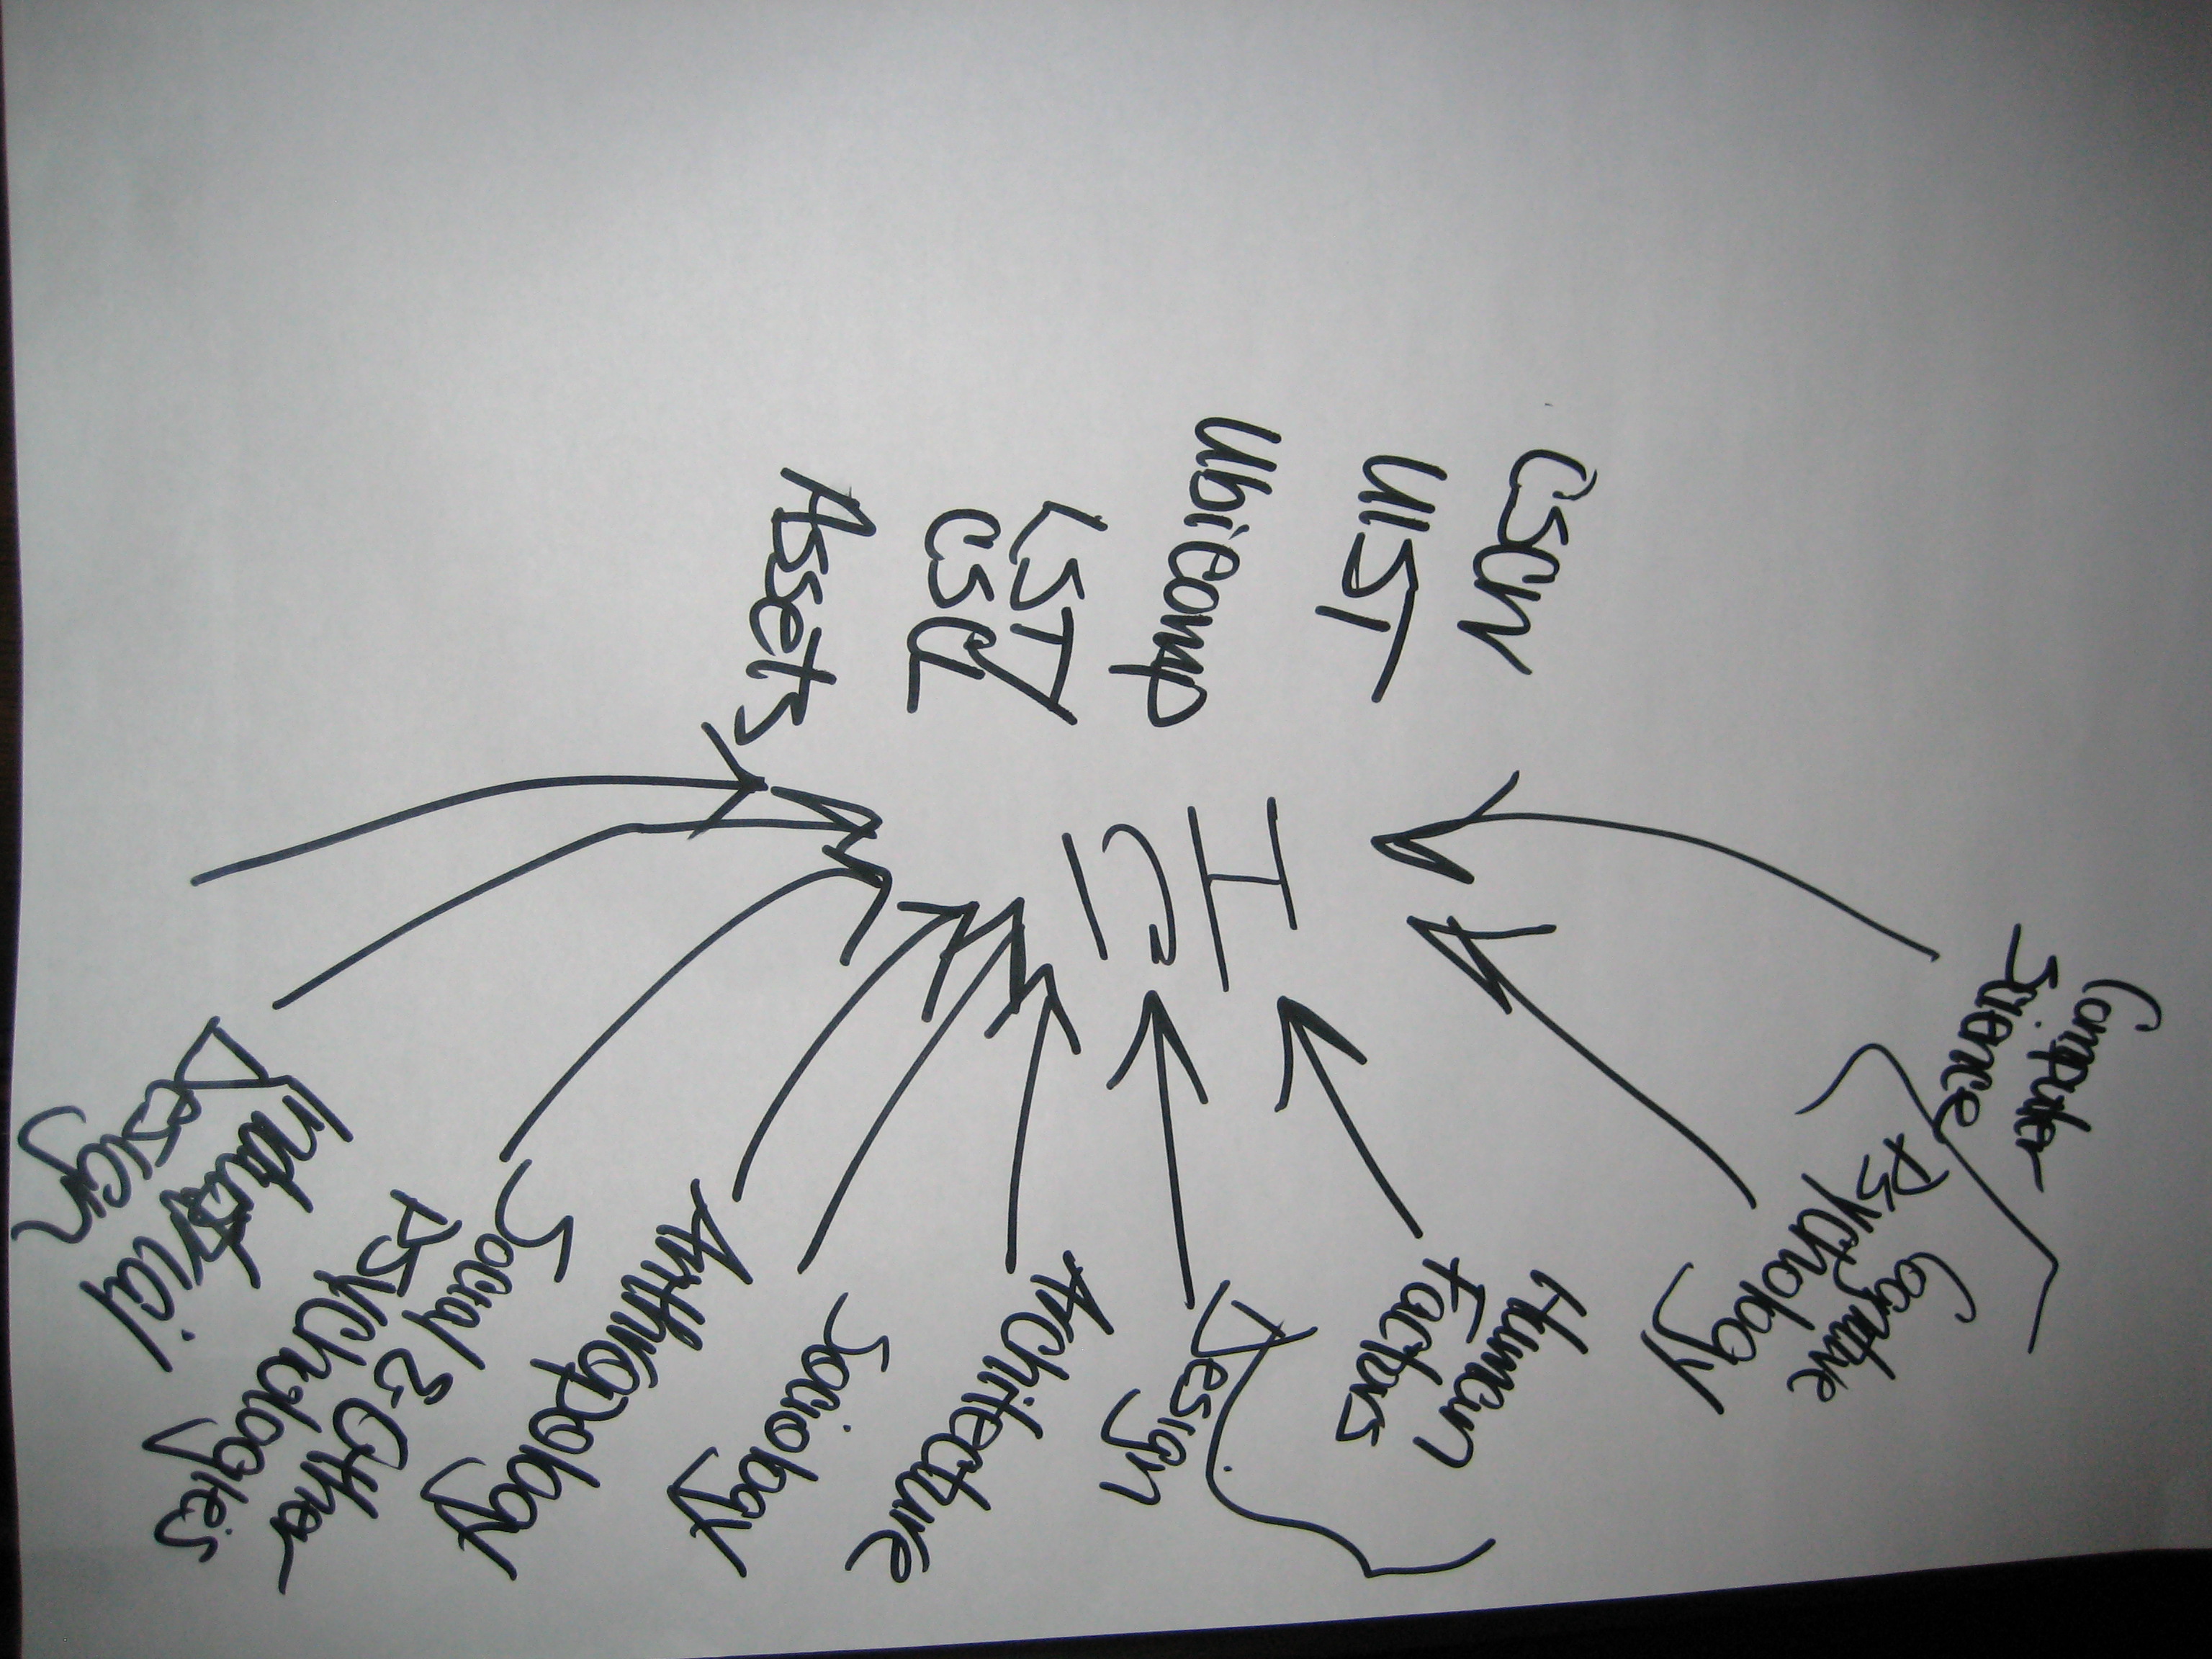 Computer
Science
Cognitive
Psychology
Human
Factors
Design
Architecture
Sociology
Anthropology
Social & Other
Psychologies
Industrial
Design
HCI
CSCW
UIST
Ubicomp
LST/
CSCL
Assets